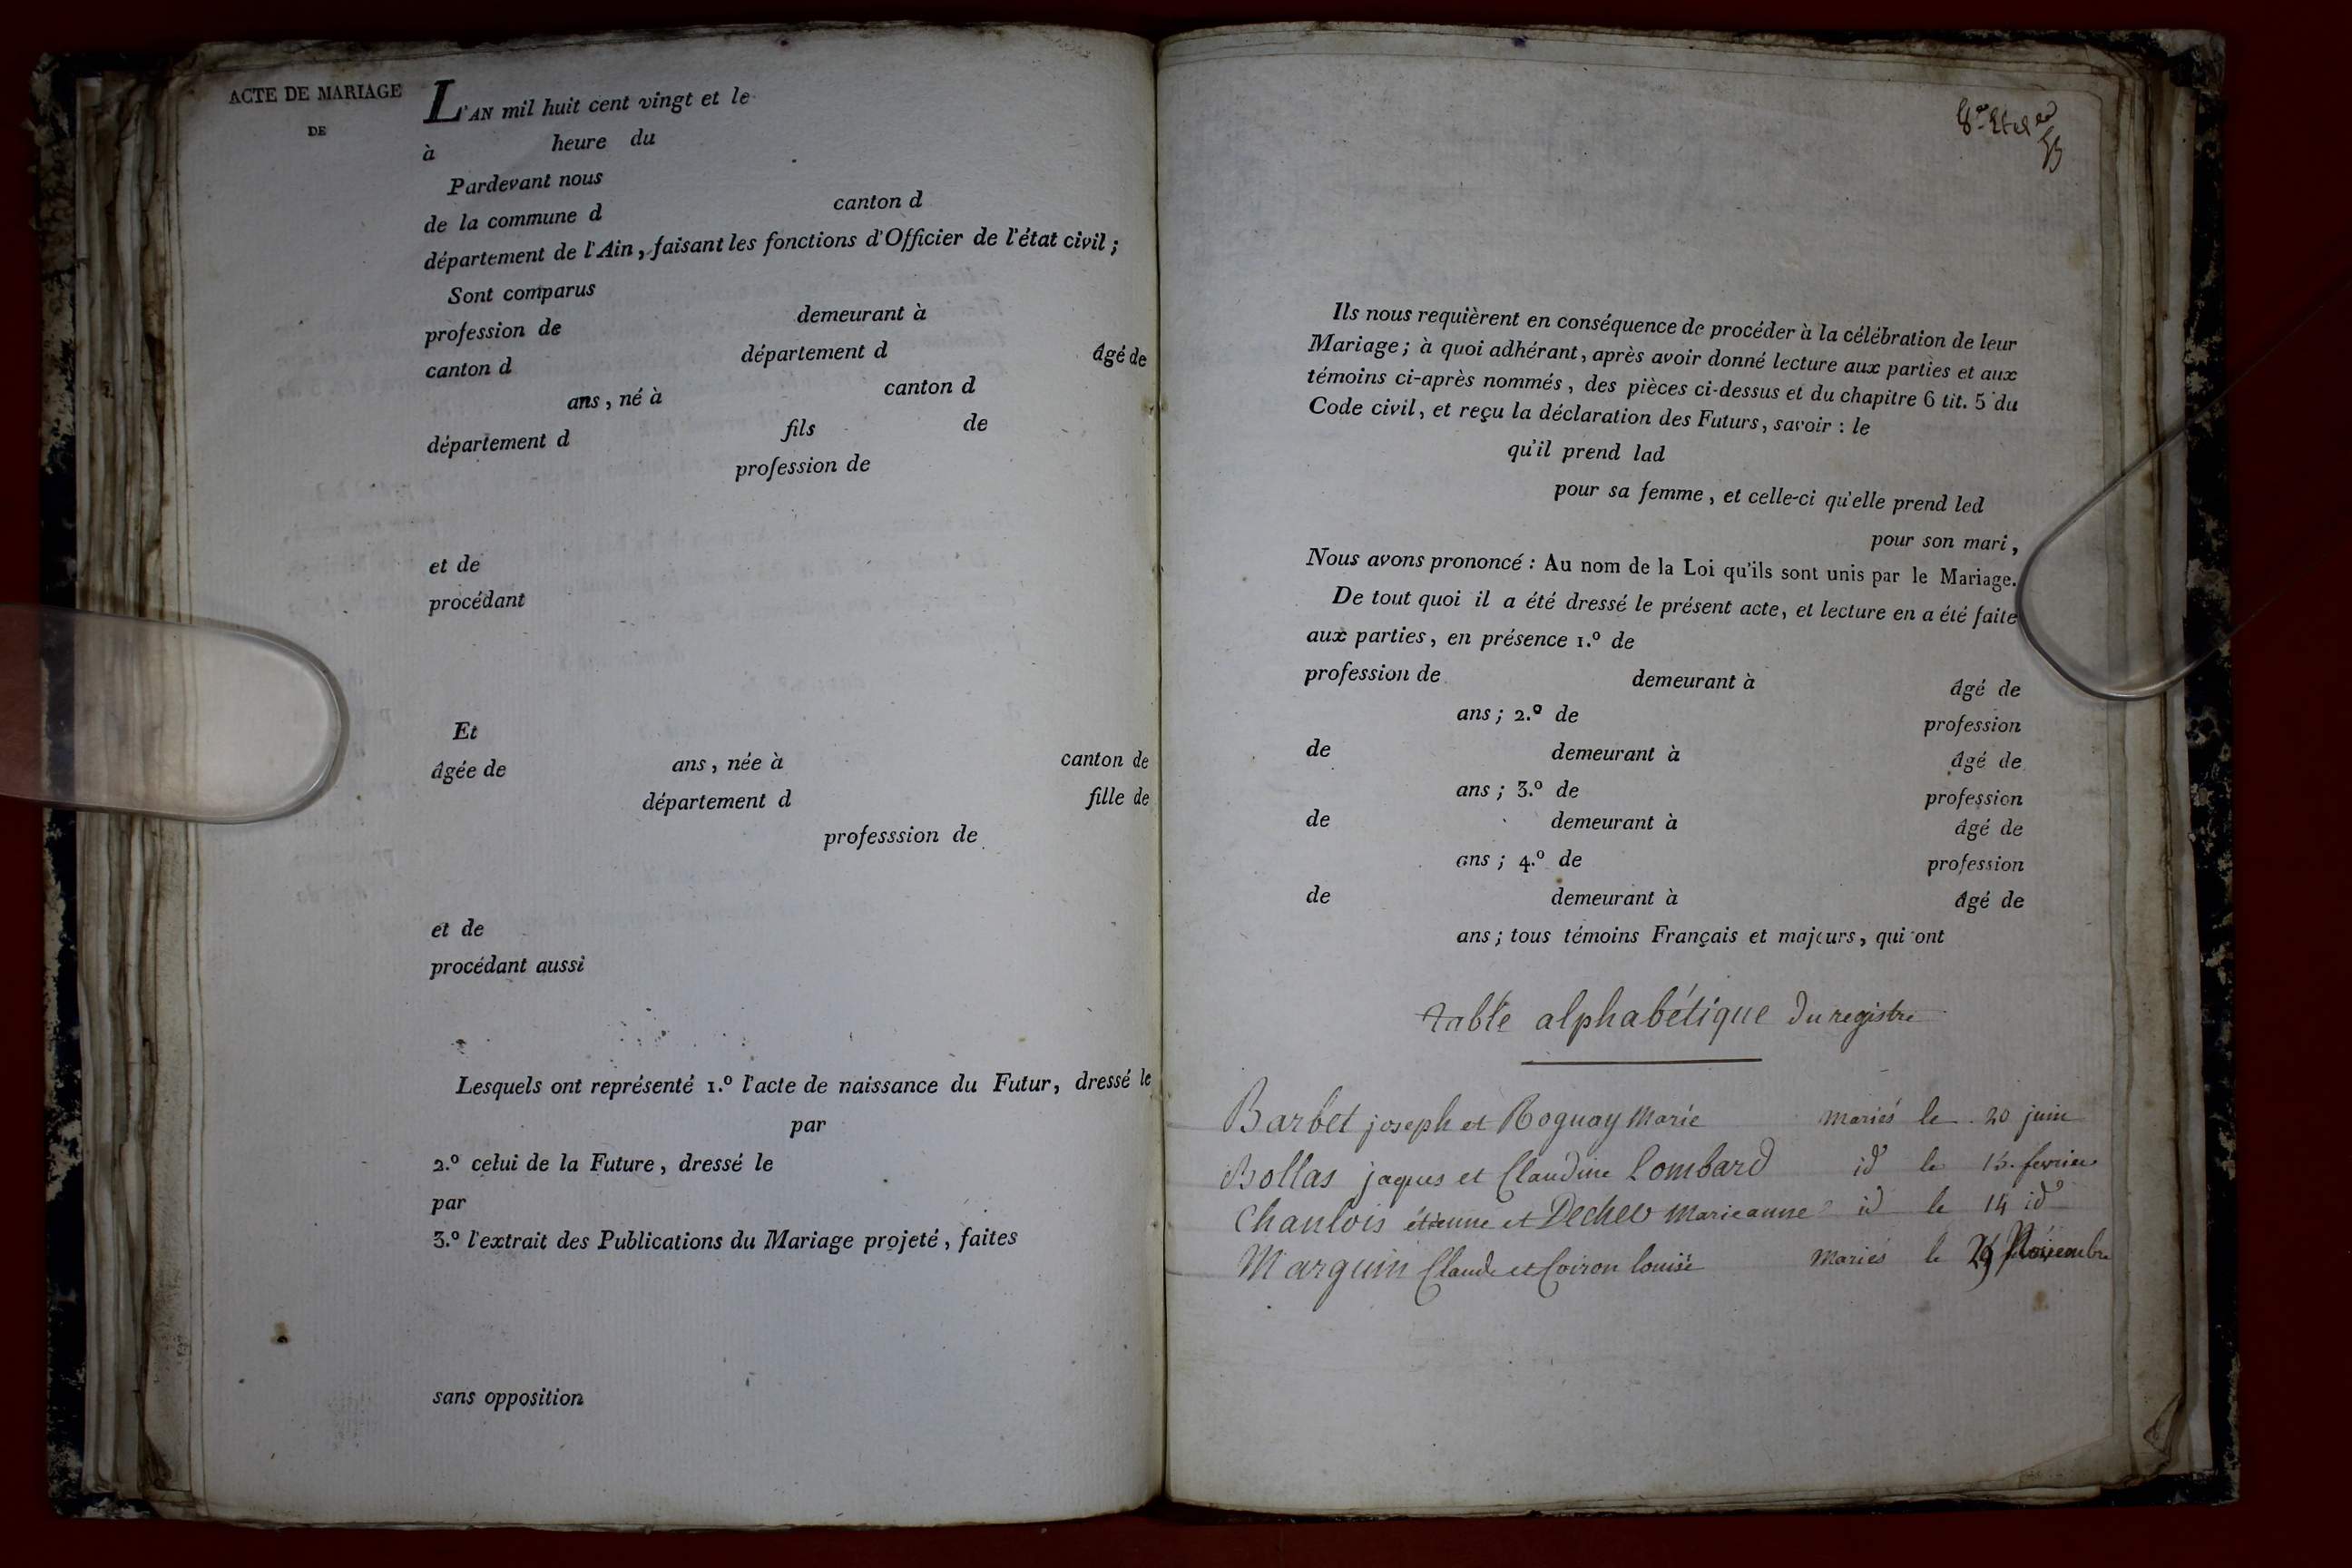 ACTE DE MARIAGE
DE
L'AN mil huit cent vingt et le
à heure du
Pardevant nous
de la commune d canton d
département de l'Ain, faisant les fonctions d'Officier de l'état civil ;
Sont comparus
profession de demeurant à
canton d département d âgé de
ans, né à canton d
département d fils de
profession de
et de
procédant
Et
âgée de ans, née à canton de
département d fille de
professsion de
et de
procédant aussi
Lesquels ont représenté 1.º l'acte de naissance du Futur, dressé le
par
2.º celui de la Future, dressé le
par
3.º l'extrait des Publications du Mariage projeté, faites
sans opposition
Ils nous requièrent en conséquence de procéder à la célébration de leur
Mariage ; à quoi adhérant, après avoir donné lecture aux parties et aux
témoins ci-après nommés, des pièces ci-dessus et du chapitre 6 tit. 5 du
Code civil, et reçu la déclaration des Futurs, savoir : le
qu'il prend lad
pour sa femme, et celle-ci qu'elle prend led
pour son mari,
Nous avons prononcé : Au nom de la Loi qu'ils sont unis par le Mariage.
De tout quoi il a été dressé le présent acte, et lecture en a été faite
aux parties, en présence 1.º de
profession de demeurant à âgé de
ans ; 2.º de profession
de demeurant à âgé de
ans ; 3.º de profession
de demeurant à âgé de
ans ; 4.º de profession
de demeurant à âgé de
ans ; tous témoins Français et majeurs, qui ont
table alphabétique du registre
Barbet joseph et Roguay Marie mariés le 20 juin
Bollas jaques et Claudine Lombard id le 15 fevrier
Chanlois étienne et Dechev marieanne id le 14 id
Marguin Claude et Coiron louise mariés le Novembre